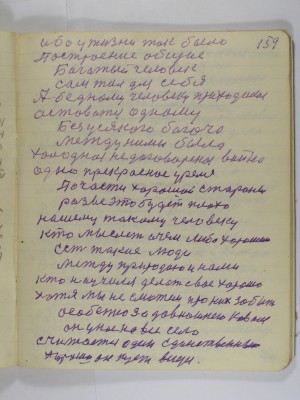 159
ибо у жизни так было
Построение общие
Богатый человек
сам жил для себя
А бедному человеку приходилось
остовати одному
Без усякого богача
между ними была
холодная недоговореная война
одно прекрасное уремя
По части хорошой стороны
разве это будет плохо
нашему такому человеку
Кто мыслет о чем либо хорошим
Ест такие люди
между природою и нами
Кто научился делат свае хорошо
хотя мы не сможем про них забит
особенно за давнешнего
он у нас на все село
считается один единственный
он пует види.